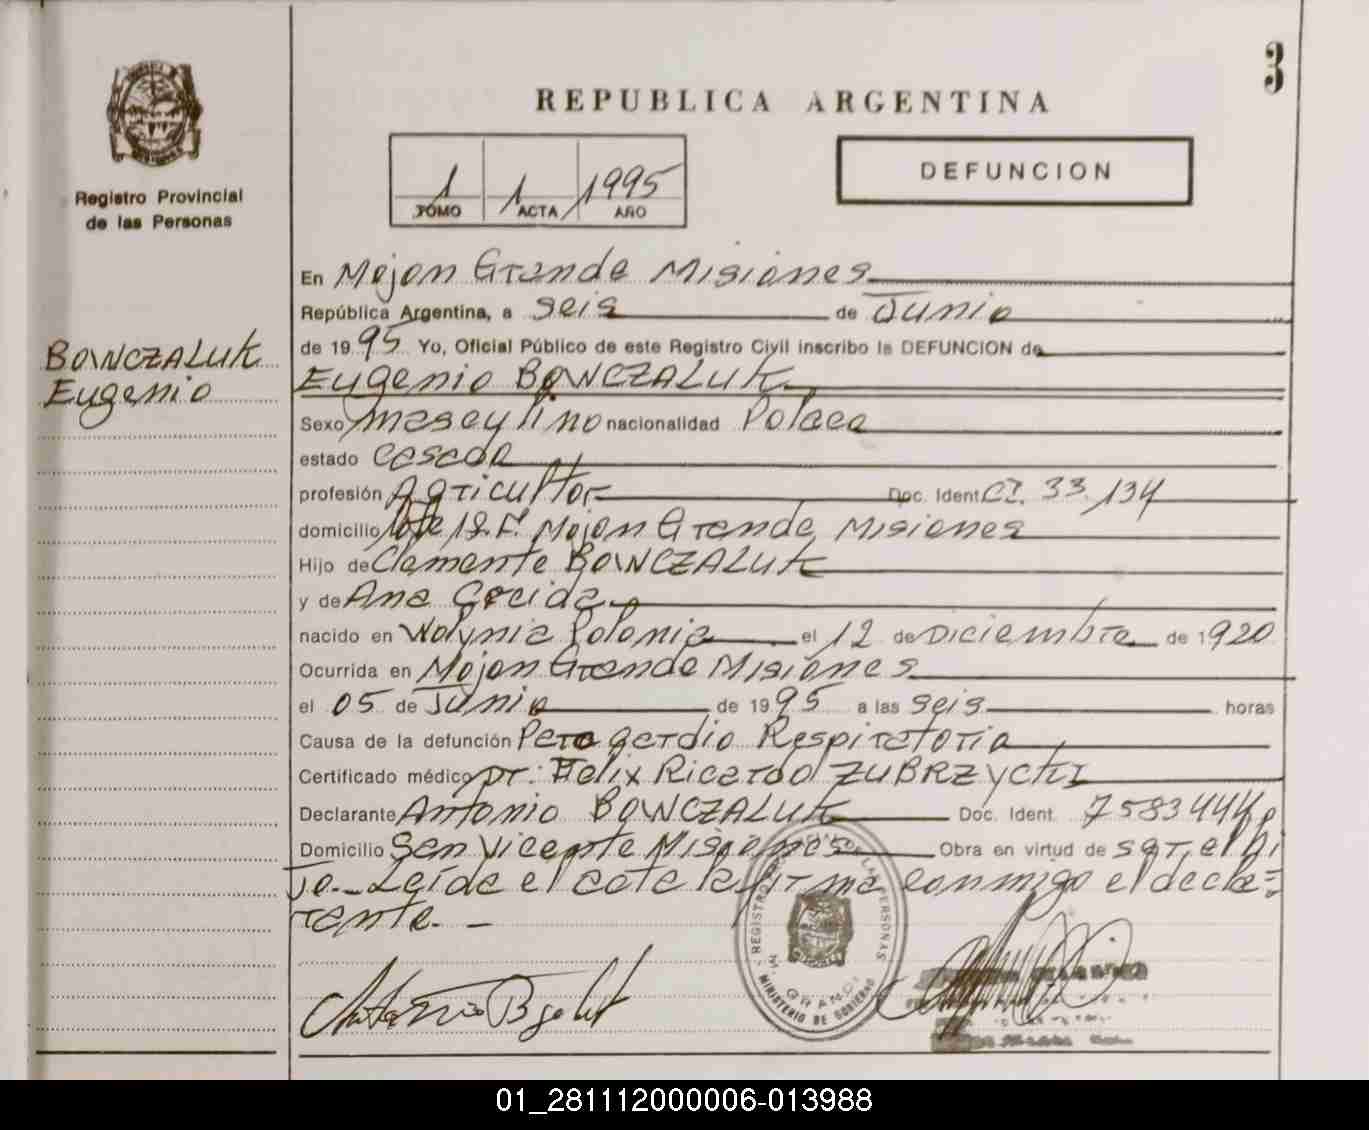 3
REPUBLICA ARGENTINA
Registro Provincial
de las Personas
1 1 1995
TOMO ACTA AÑO
DEFUNCION
BOWCZALUK
Eugenio
En Mojon Grande Misiones
República Argentina, a seis de Junio
de 1995 Yo, Oficial Público de este Registro Civil inscribo la DEFUNCION de
Eugenio BOWCZALUK
Sexo masculino nacionalidad Polaca
estado casado
profesión Agricultor Doc. Ident CI. 33.134
domicilio lote 18.F. Mojon Grande Misiones
Hijo de Clemente BOWCZALUK
y de Ana
nacido en Wolynia Polonia el 12 de Diciembre de 1920
Ocurrida en Mojon Grande Misiones
el 05 de Junio de 1995 a las seis horas
Causa de la defunción Paro cardio Respiratorio
Certificado médico Dr: Felix Ricardo ZUBRZYCKI
Declarante Antonio BOWCZALUK Doc. Ident. 7583444
Domicilio San Vicente Misiones Obra en virtud de ser, el hi
Jo._ Leída el acta la firma conmigo el decla=
rante. _
REGISTRO PROVINCIAL DE LAS PERSONAS
M. GRANDE
MINISTERIO DE GOBIERNO
01_281112000006-013988